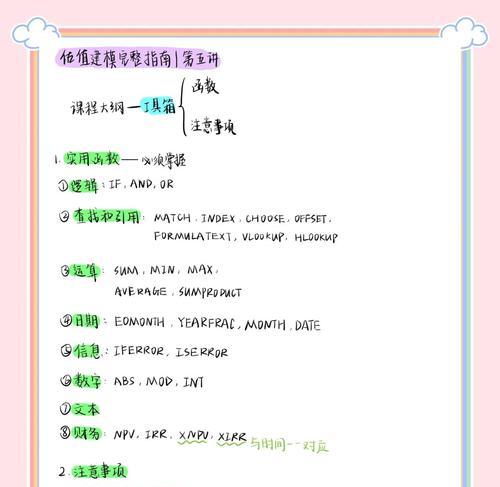 估值建模完整指南|第五讲
函数
课程大纲—工具箱
注意事项
1. 实用函数——必须掌握
①逻辑: IF, AND, OR
②查找和引用: MATCH, INDEX, CHOOSE, OFFSET,
FORMULATEXT, VLOOKUP, HLOOKUP
③运算: SUM, MIN, MAX,
AVERAGE, SUMPRODUCT
④日期: EOMONTH, YEARFRAC, MONTH, DATE
⑤信息: IFERROR, ISERROR
⑥数字: ABS, MOD, INT
⑦文本
⑧财务: NPV, IRR, XNPV, XIRR 与时间一一对应
2. 注意事项